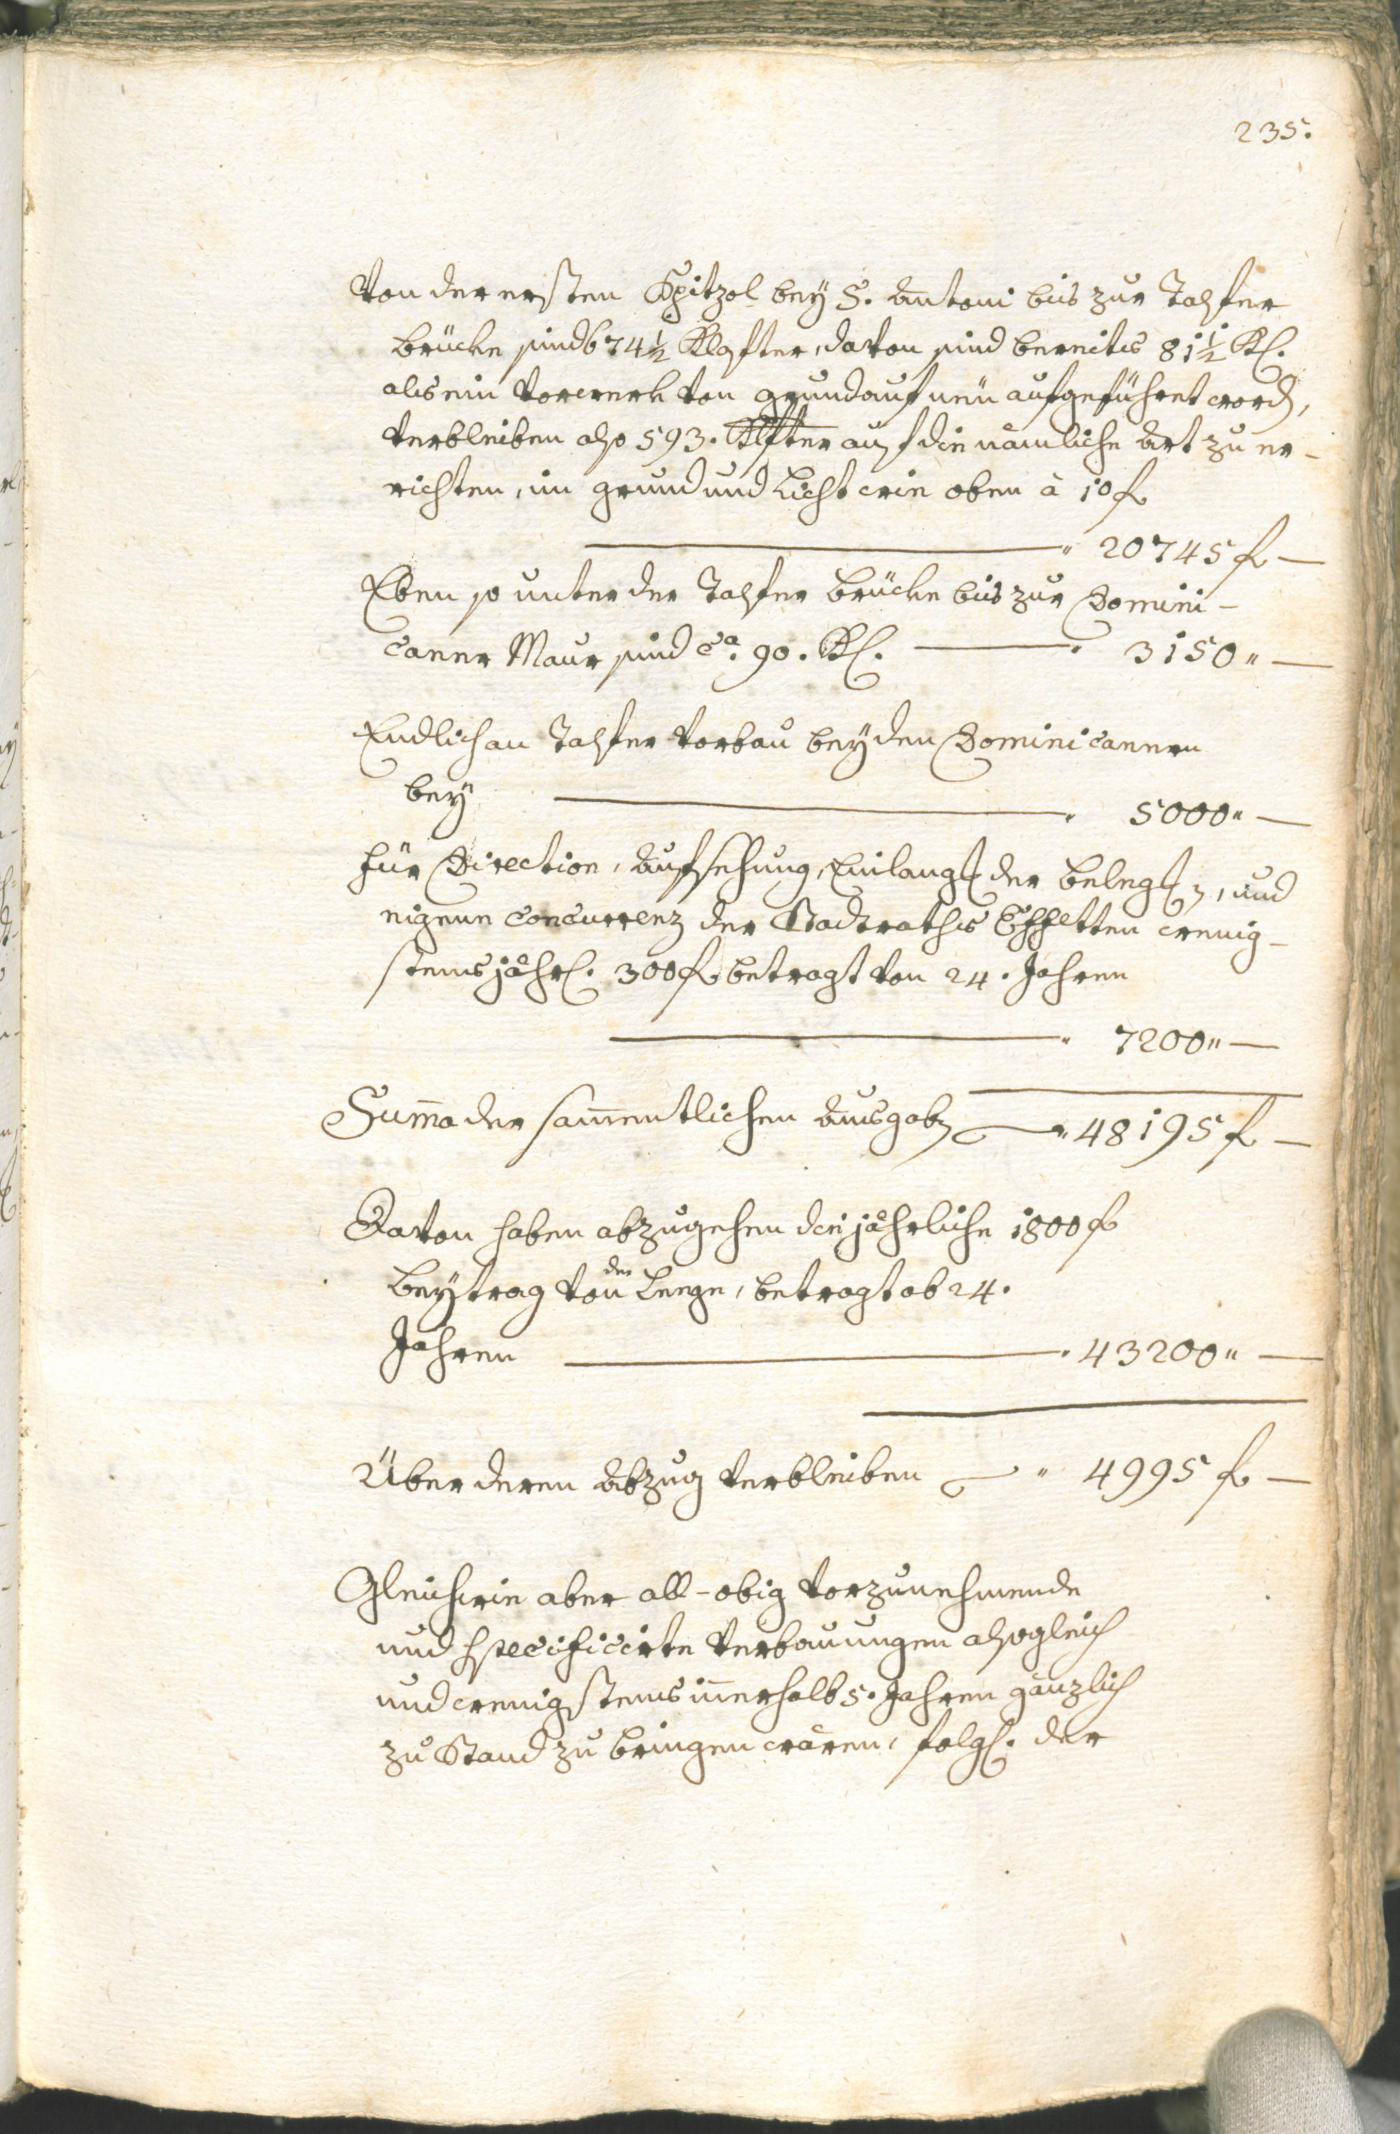 235.
Von der ersten Spitzol bey S. Antoni bis zur Talfer
brücke sind 674½ Klafter, davon sind bereites 81½ Kl.
als ein Vorwerk von grundauf neü aufgeführet word,
verbleiben also 593. Klfter auf die nämliche Art zu er-
richten, im grund und Licht wie oben à 10 f
" 20745 f —
Eben so unter der Talfer brücke bis zur Domini-
caner Maur sind ca. 90. Kl. " 3150 " —
Endlich an Talfer Vorbau bey den Dominicanern
bey " 5000 " —
für Direction, Aufsehung, der und
eigene Concurrenz der Stadtraths wenig-
stens jährl. 300 f betragt von 24. Jahren
" 7200 " —
Summa der sammentlichen Ausgabn " 48195 f —
Davon haben abzugehen die jährliche 1800 f
Beytrag von der Leege, betragt ob 24.
Jahren " 43200 " —
Über deren Abzug verbleiben " 4995 f —
Gleichwie aber all-obig vorzunehmende
und specificirte Verbauungen alsogleich
und wenigstens innerhalb 5. Jahren gänzlich
zu Stand zu bringen wären, folgl. der